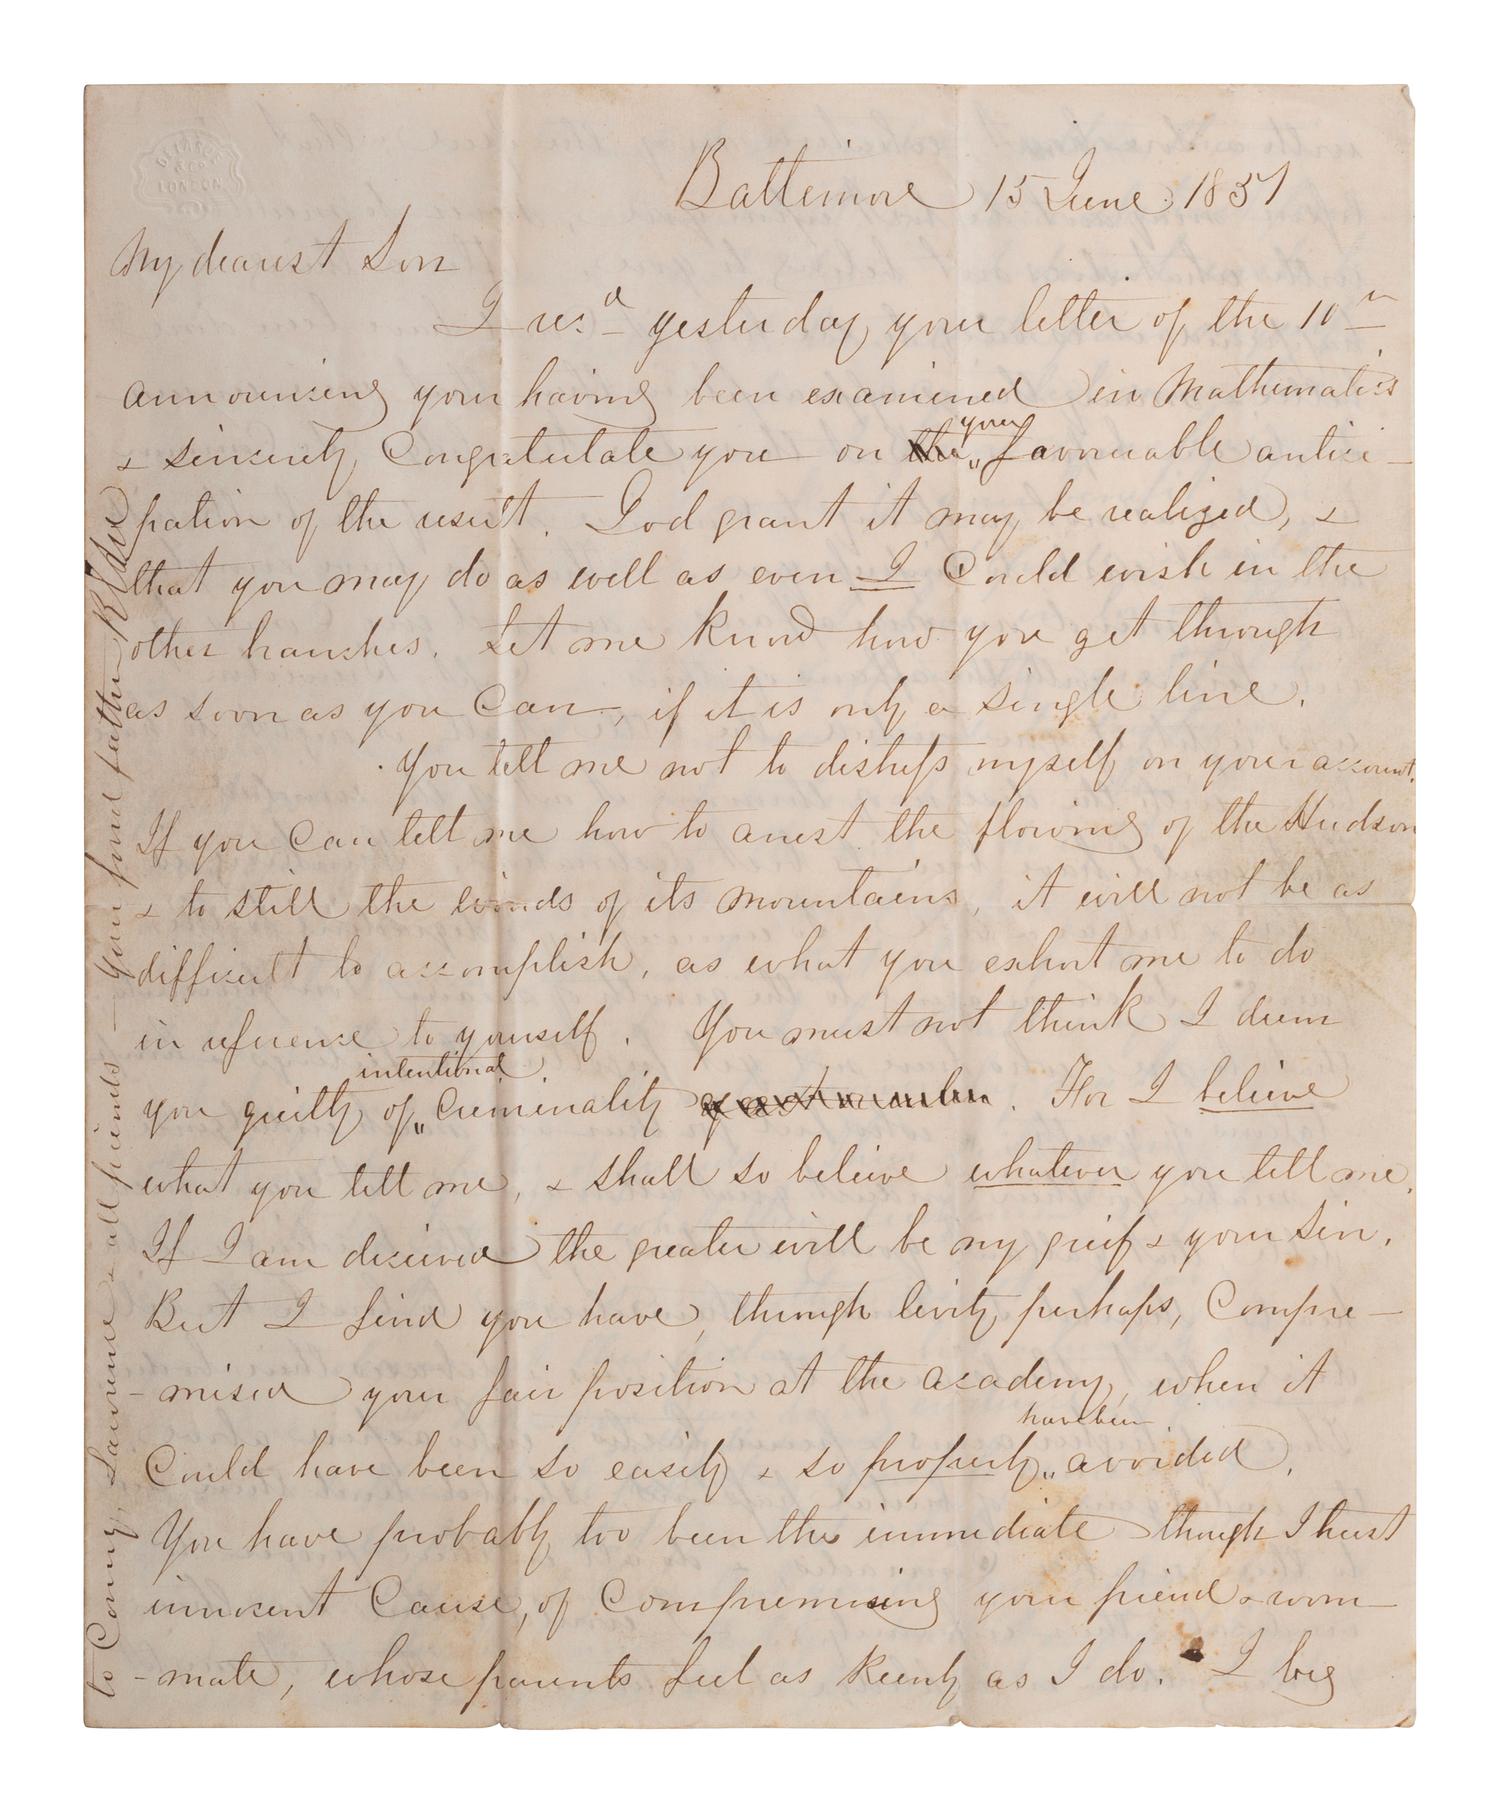 Baltimore 15 June 1851
My dearest Son
I rec.d yesterday your letter of the 10th
announcing your having been examined in Mathematics
& sincerely Congratulate you on the your favourable antici-
pation of the result. God grant it may be realized, &
that you may do as well as even I Could wish in the
other branches. Let me know how you get through
as soon as you Can, if it is only a single line.
You tell me not to distress myself on your account.
If you Can tell me how to arrest the flowing of the Hudson
& to still the winds of its mountains, it will not be as
difficult to accomplish, as what you exhort me to do
in reference to yourself. You must not think I deem
you guilty of intentional Criminality. For I believe
what you tell me, & shall so believe whatever you tell me.
If I am deceived the greater will be my grief & your sin.
But I find you have, through levity perhaps, Compro-
-mised your fair position at the academy, when it
Could have been so easily & so properly have been avoided.
You have probably too been the immediate though I trust
innocent Cause, of Compromising your friend & room-
-mate, whose parents feel as keenly as I do. I beg
to Conny, Lawrence & all friends — Your fond father R E Lee
DE LA RUE
& Co
LONDON